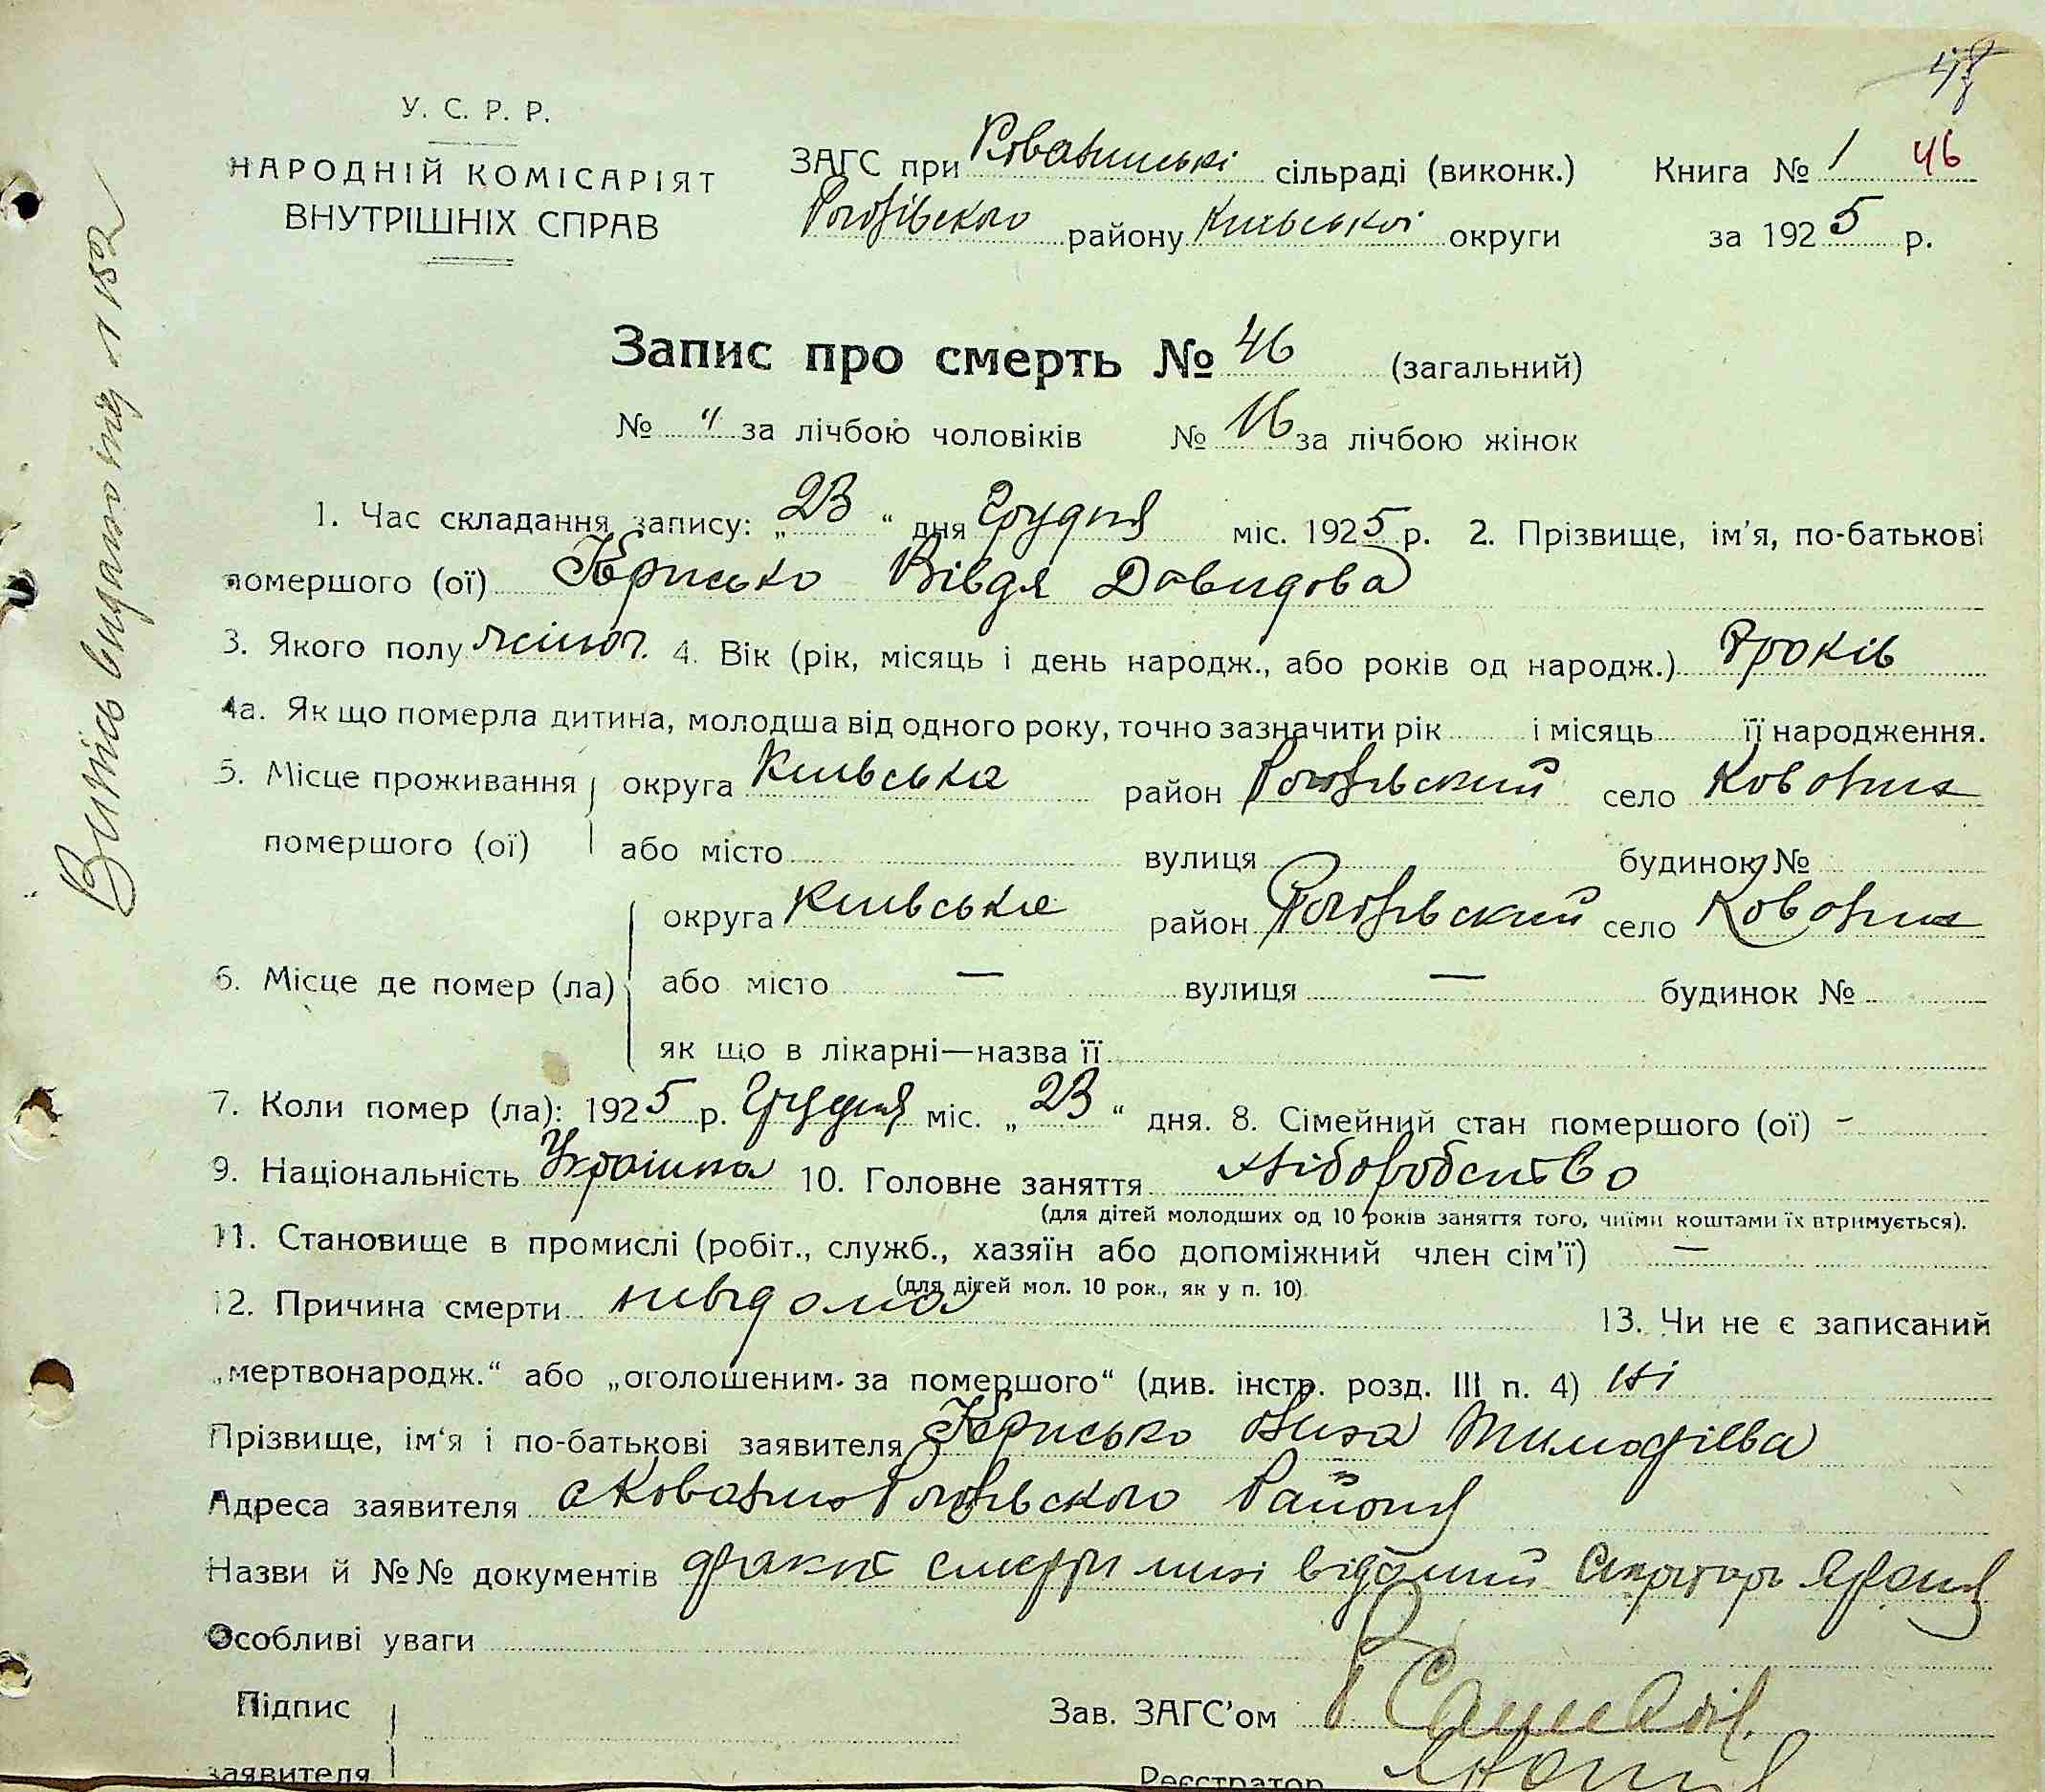 У. С. Р. Р.
НАРОДНІЙ КОМІСАРІЯТ
ВНУТРІШНІХ СПРАВ
ЗАГС при Кованиські сільраді (виконк.)
Рогозівского району Київської округи
Книга № 1 46
за 1925 р.
Запис про смерть № 46 (загальний)
№ " за лічбою чоловіків № 16 за лічбою жінок
1. Час складання запису: „23“ дня Грудня міс. 1925 р. 2. Прізвище, ім'я, по-батькові
помершого (ої) Борисько Вівдя Давидова
3. Якого полу жіноч. 4. Вік (рік, місяць і день народж., або років од народж.) 7 років
4а. Як що померла дитина, молодша від одного року, точно зазначити рік і місяць її народження.
5. Місце проживання округа Київська район Рогозівский село Кованин
помершого (ої) або місто вулиця будинок №
округа Київська район Рогозівский село Кованин
6. Місце де помер (ла) або місто — вулиця — будинок №
як що в лікарні—назва її
7. Коли помер (ла): 1925 р. Грудня міс. „23“ дня. 8. Сімейний стан помершого (ої) -
9. Національність Украінка 10. Головне заняття хліборобство
(для дітей молодших од 10 років заняття того, чиїми коштами їх втримується).
11. Становище в промислі (робіт., служб., хазяїн або допоміжний член сім'ї) —
(для дітей мол. 10 рок., як у п. 10)
12. Причина смерти невідома 13. Чи не є записаний
„мертвонародж.“ або „оголошеним за помершого“ (див. інстр. розд. III п. 4) Ні
Прізвище, ім'я і по-батькові заявителя Борисько Тимофієва
Адреса заявителя с Кованин Рогозівского Району
Назви й №№ документів факт смерти мині відомий Секретарь
Особливі уваги
Підпис
заявителя
Зав. ЗАГС'ом
Реєстратор
Випись видано під № 182